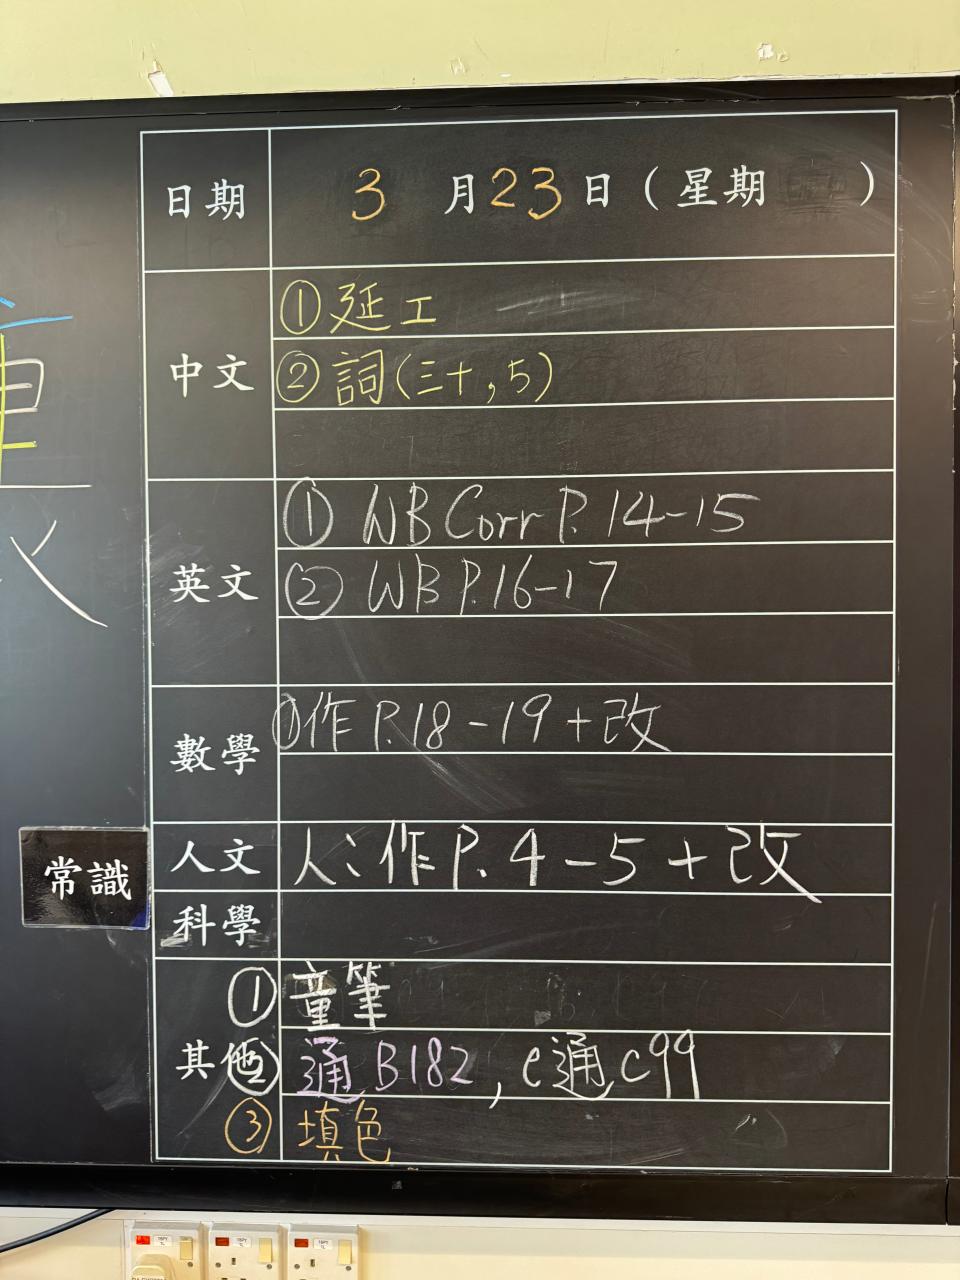 日期 3月23日(星期 )
中文
①延工
②詞(三十,5)
英文
① WB Corr P.14-15
② WB P.16-17
數學
①作 P.18-19+改
常識
人文 人:作 P.4-5+改
科學
其他
① 童筆
② 通 B182, e通 c99
③ 填色